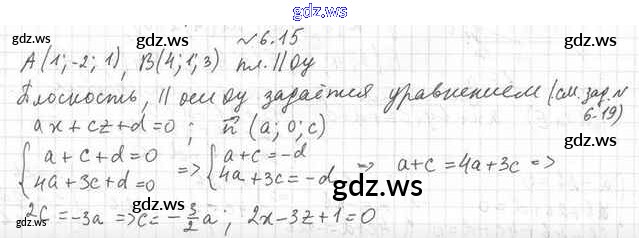 gdz.ws
№6.15
gdz.ws gdz.ws
A(1;-2;1), B(4;1;3) пл. || Oy
Плоскость, || оси Oy задаётся уравнением (см. зад. №
6.19)
ax+cz+d=0; n⃗ (a; 0; c)
{a+c+d=0 => {a+c=-d => a+c=4a+3c =>
4a+3c+d=0 4a+3c=-d
gdz.ws gdz.ws
2c=-3a => c=-3/2a; 2x-3z+1=0
gdz.ws